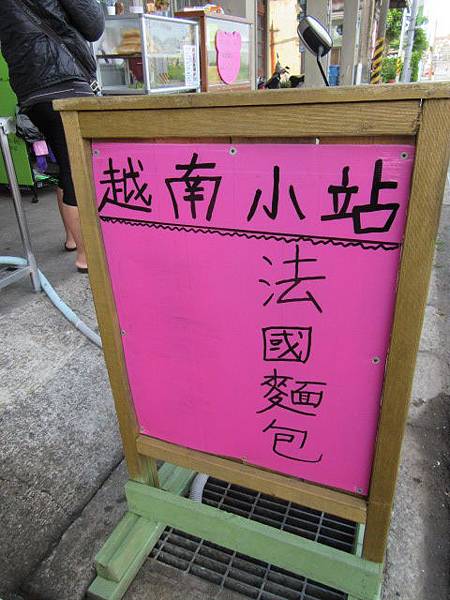 越南小站
法國麵包